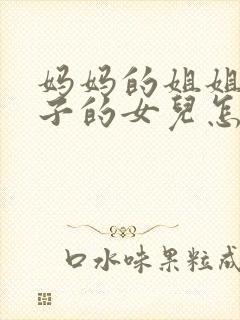 妈妈的姐姐
子的女兒怎
口水味果粒成